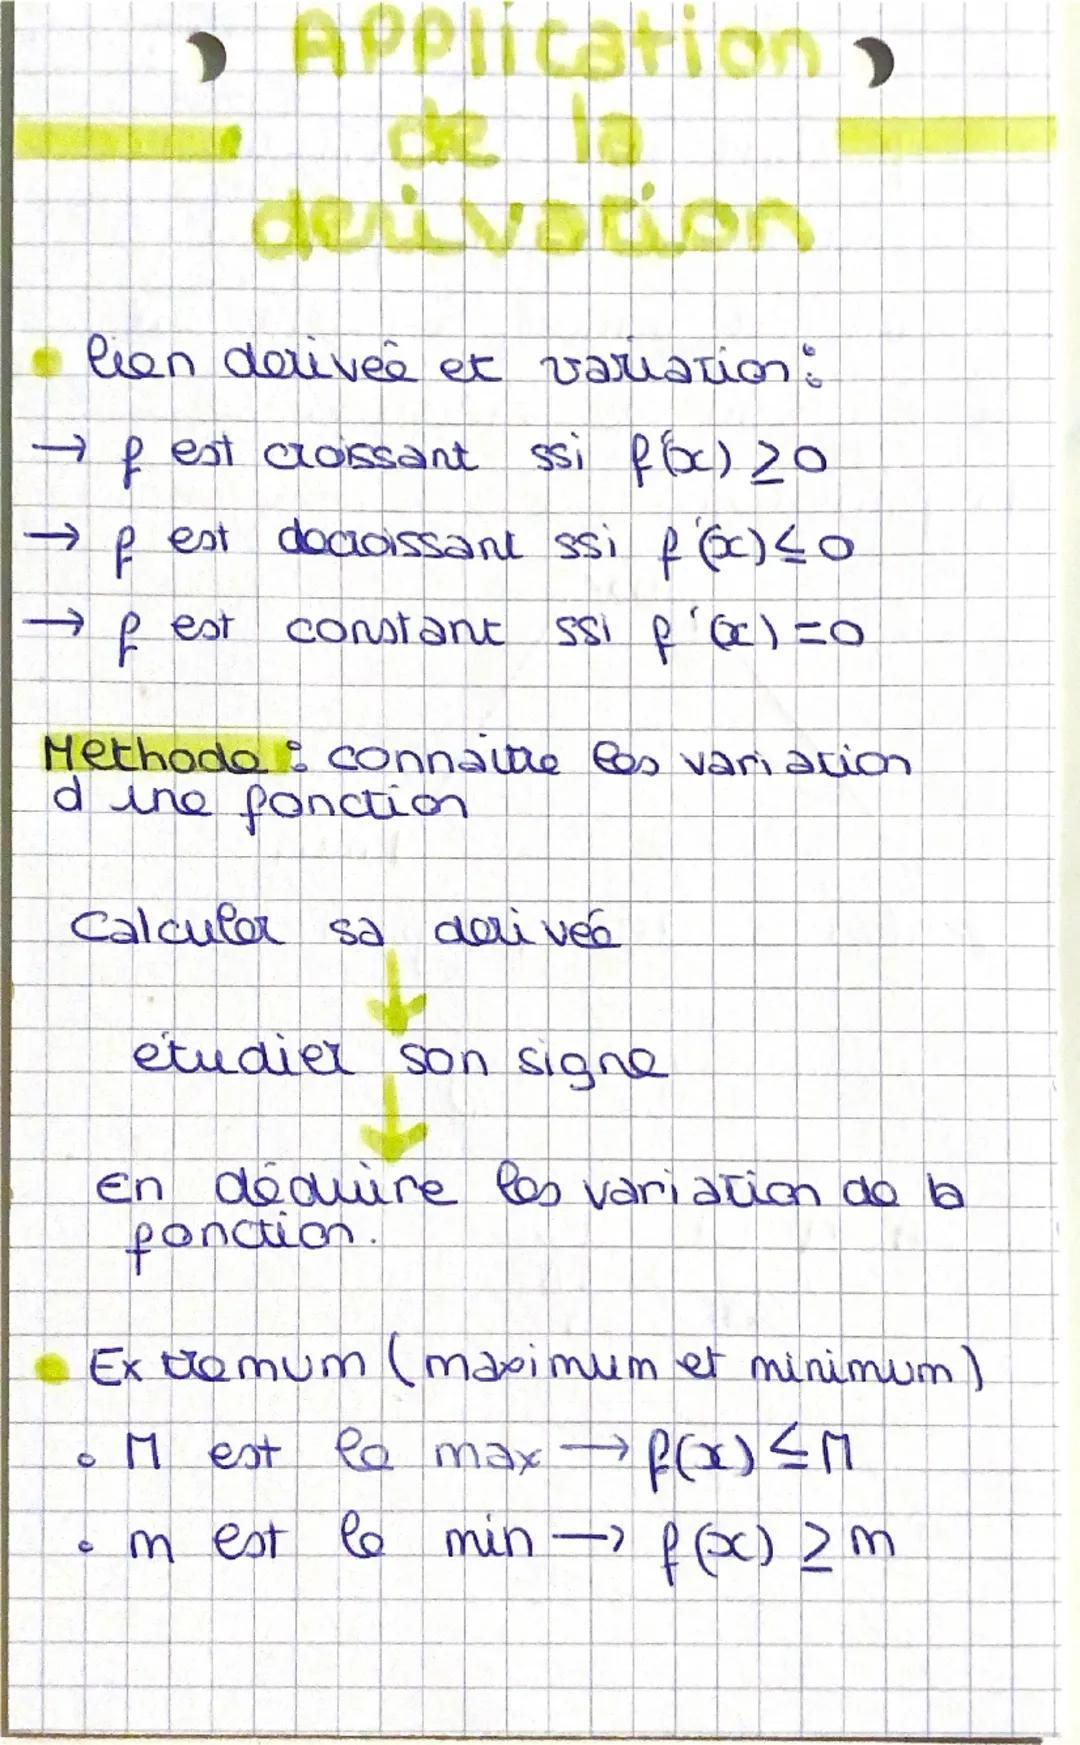 Application
de la
derivation
lien deriveé et variation :
→ f est croissant ssi f'(x) ≥ 0
→ f est decroissant ssi f'(x) ≤ 0
→ f est constant ssi f'(x) = 0
Methode : connaitre les variation
d une fonction
Calculer sa deriveé
étudier son signe
En déduire les variation de la
fonction.
Extremum (maximum et minimum)
• M est le max → f(x) ≤ M
• m est le min → f(x) ≥ m